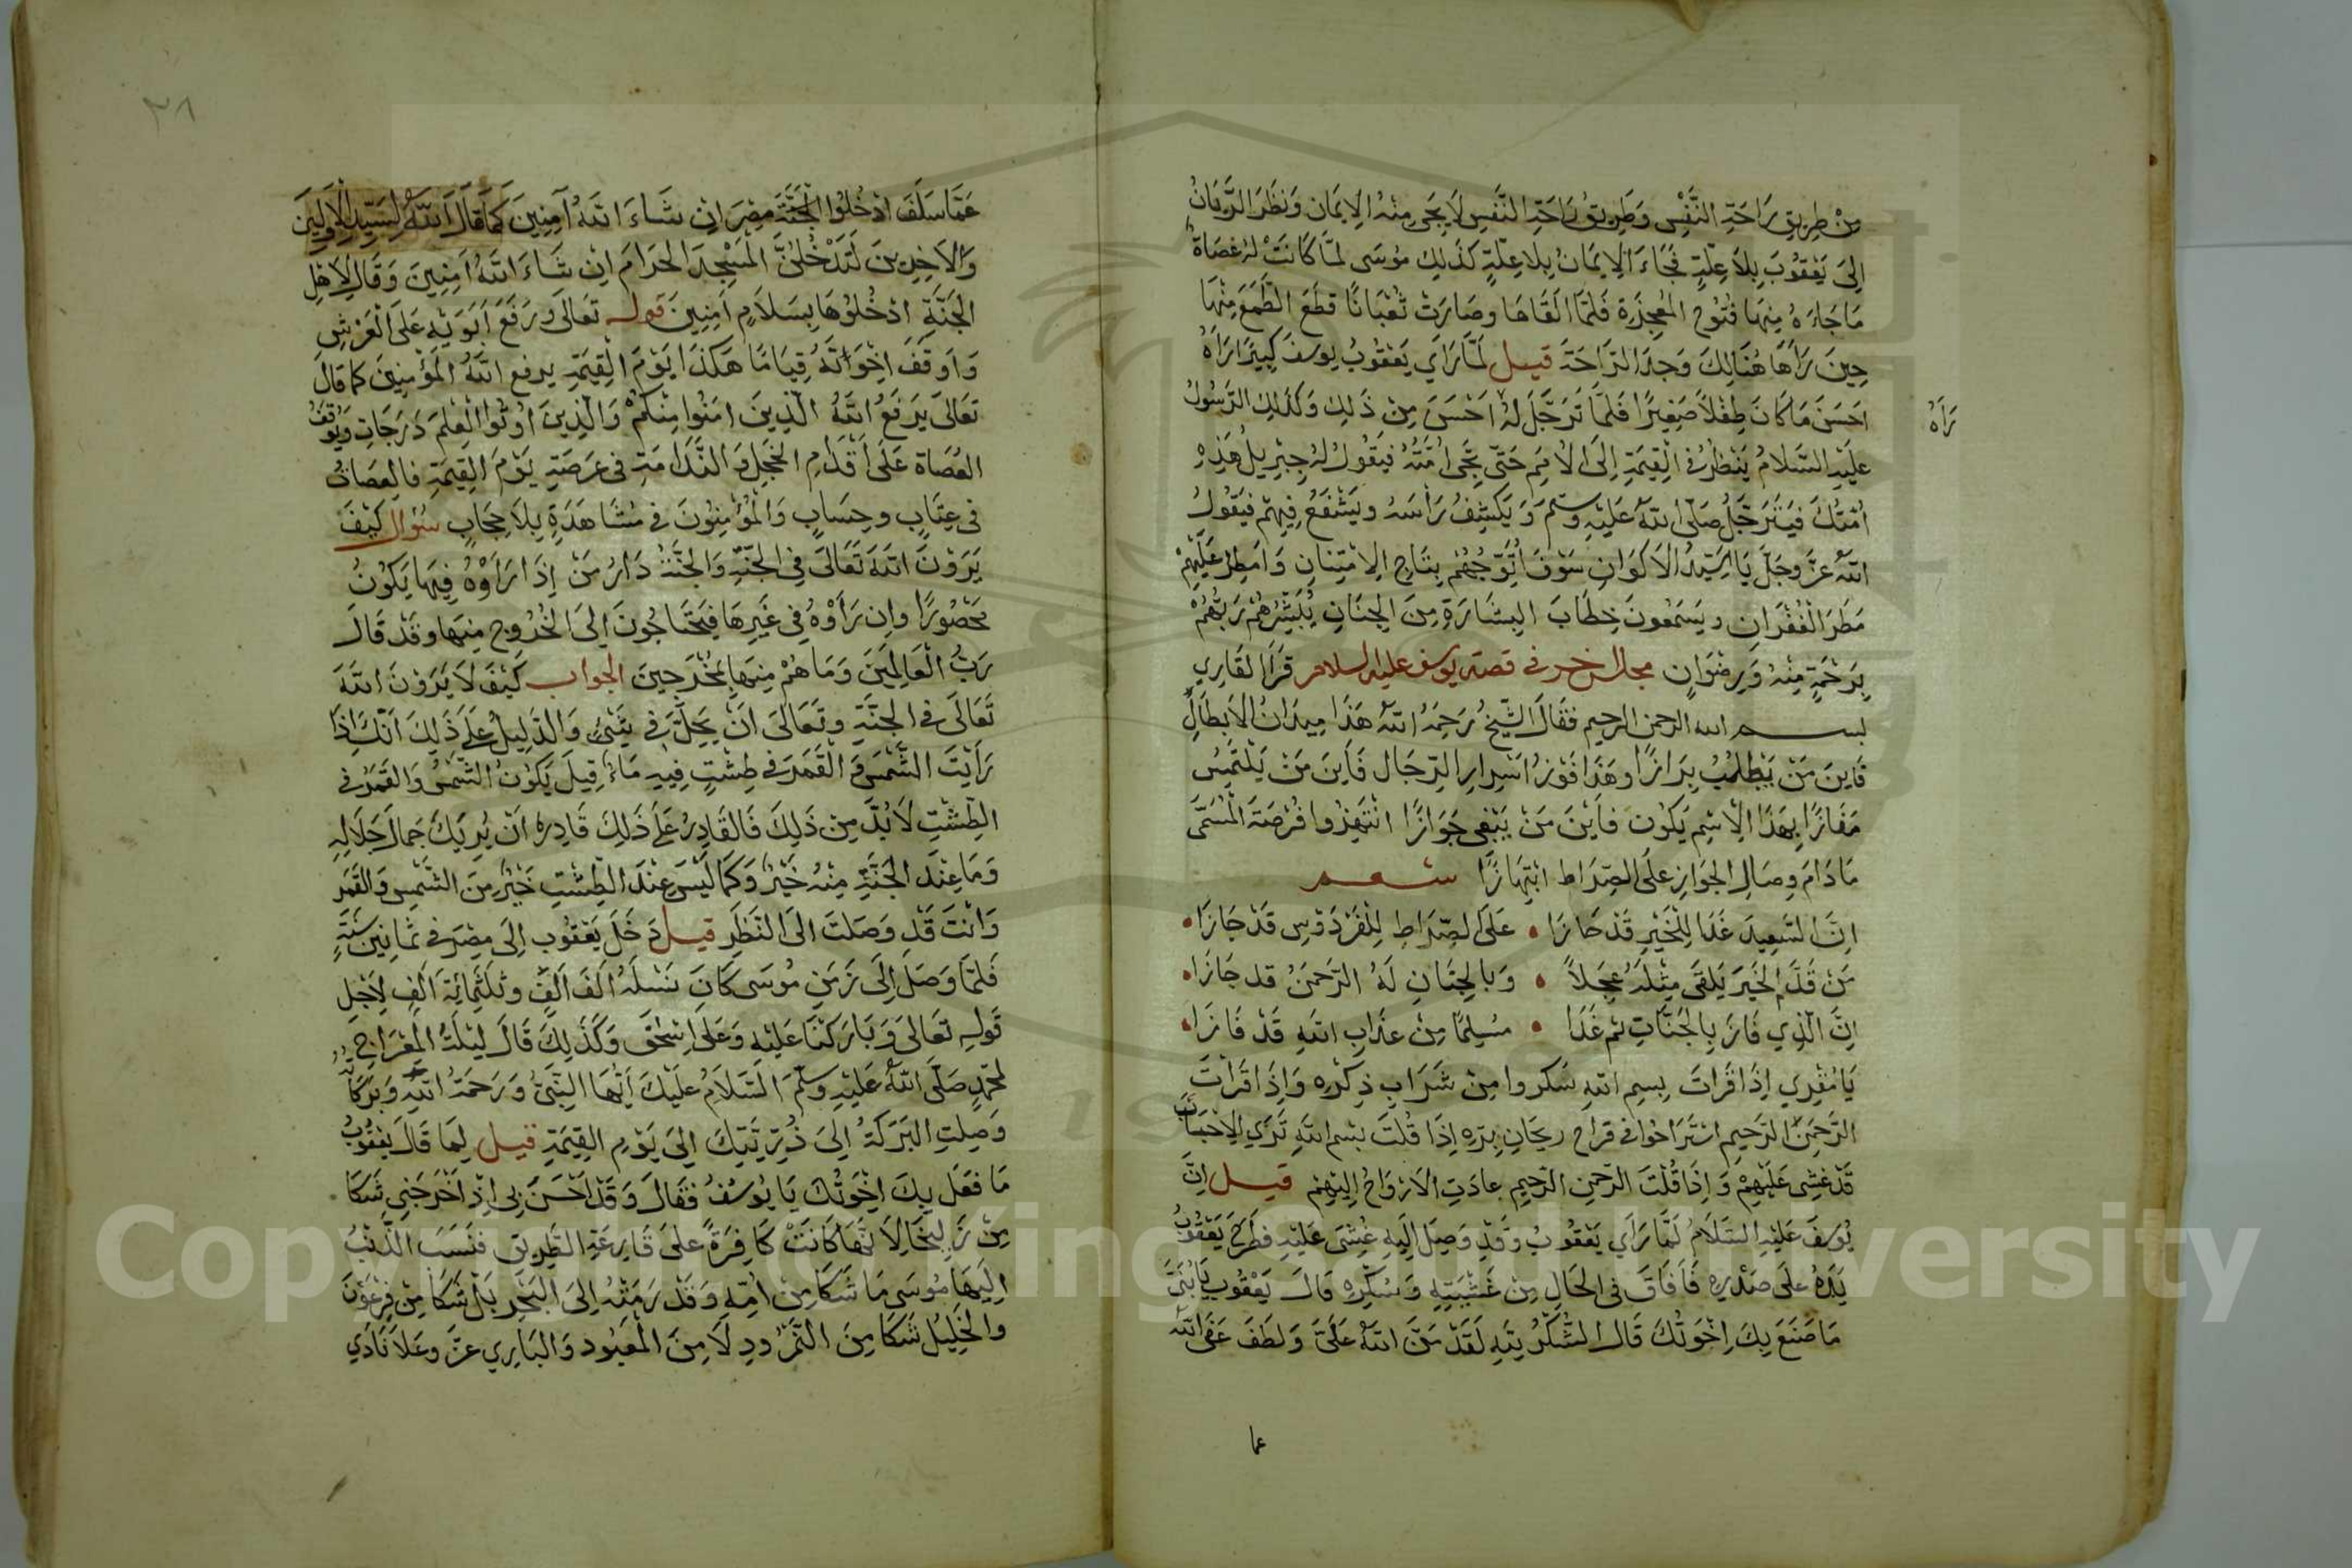 مِنْ طَرِيقِ رَاحَةِ النَّفْسِ وَطَرِيقُ رَاحَةِ النَّفْسِ لَا يَجِي مِنْهُ الْاِيمَان وَنَظَرَ الرَّيَّانُ
اِلَى يَعْقُوبَ بِلَا عِلَّةٍ فَجَاءَ الْاِيمَانُ بِلَا عِلَّةٍ كَذَلِكَ مُوسَى لَمَّا كَانَتْ لَهُ عَصَاهُ
مَا جَاءَهُ مِنْهَا فُتُوحُ الْمُعْجِزَةِ فَلَمَّا اَلْقَاهَا وَصَارَتْ ثُعْبَانًا قَطَعَ الطَّمَعَ مِنْهَا
حِينَ رَآهَا هُنَالِكَ وَجَدَ الرَّاحَةَ قيل لَمَّا رَاَى يَعْقُوبُ يوسفَ كَبِيرًا رَآهُ
رَآهُ
اَحْسَنَ مَا كَانَ طِفْلًا صَغِيرًا فَلَمَّا تَرَجَّلَ لَهُ اَحْسَنَ مِنْ ذَلِكَ وَكَذَلِكَ الرَّسُولُ
عَلَيْهِ السَّلَامُ يَنْظُرُ فِي الْقِيمَةِ اِلَى الْاُمَمِ حَتَّى تَجِي اُمَّتُهُ فَيَقُولُ لَهُ جِبْرِيلُ هَذِهِ
اُمَّتُكَ فَيَتَرَجَّلُ صَلَّى اللّٰهُ عَلَيْهِ وَسَلَّمَ وَيَكْشِفُ رَأْسَهُ وَيَشْفَعُ فِيهِمْ فَيَقُولُ
اللّٰهُ عَزَّ وَجَلَّ يَا سَيِّدَ الْاَكْوَانِ سَوْفَ اُتَوِّجُهُمْ بِتَاجِ الْاِمْتِنَانِ وَاَمْطِرُ عَلَيْهِمْ
مَطَرَ الْغُفْرَانِ وَيَسْمَعُونَ خِطَابَ الْبِشَارَةِ مِنَ الْجِنَانِ يُبَشِّرُهُمْ رَبُّهُمْ
بِرَحْمَةٍ مِنْهُ وَرِضْوَانٍ مجلس اخر في قصة يوسف عليه السلام قَرَأَ الْقَارِي
بسم الله الرحمن الرحيم فَقَالَ الشَّيْخُ رَحِمَهُ اللّٰهُ هَذَا مِيدَانُ الْاَبْطَالِ
فَاَيْنَ مَنْ يَطْلُبُ بِرَازًا وَهَذَا فَوْزُ اَسْرَارِ الرِّجَالِ فَاَيْنَ مَنْ يَلْتَمِسُ
مَفَازًا بِهَذَا الْاِسْمِ يَكُون فَاَيْنَ مَنْ يَبْغِي جَوَازًا انْتَهِزُوا فُرْصَةَ الْمُسَمَّى
مَا دَامَ وِصَالِ الْجَوَازِ عَلَى الصِّرَاطِ انْتِهَازًا شعر
اِنَّ السَّعِيدَ غَدًا لِلْخَيْرِ قَدْ حَازَا • عَلَى الصِّرَاطِ لِلْفِرْدَوْسِ قَدْ جَازَا •
مَنْ قَدَّمَ الْخَيْرَ يَلْقَى مِثْلَهُ عَجِلًا • وَبِالْجِنَانِ لَهُ الرَّحْمَنُ قَد جَازَا •
اِنَّ الَّذِي فَازَ بِالْجَنَّاتِ ثم غَدَا • مُسَلِّمًا مِنْ عَذَابِ اللّٰهِ قَدْ فَازَا •
يَا مُقْرِي اِذَا قَرَأْتَ بِسْمِ اللّٰهِ سَكِرُوا مِنْ شَرَابِ ذِكْرِهِ وَاِذَا قَرَأْتَ
الرَّحْمَنِ الرَّحِيمِ اسْتَرَاحُوا فِي قراح رَيْحَانِ بِرِّهِ اِذَا قُلْتَ بِسْمِ اللّٰهِ تَرَى الْاَحْبَابَ
قَدْ غُشِيَ عَلَيْهِمْ وَاِذَا قُلْتَ الرَّحْمَنِ الرَّحِيمِ عَادَتِ الْاَرْوَاحُ اِلَيْهِمْ قيل اِنَّ
يُوسُفَ عَلَيْهِ السَّلَامُ لَمَّا رَاَى يَعْقُوبَ وَقَدْ وَصَلَ اِلَيْهِ غُشِيَ عَلَيْهِ فَطَرَحَ يَعْقُوبُ
يَدَهُ عَلَى صَدْرِهِ فَاَفَاقَ فِي الْحَالِ مِنْ غَشْيَتِهِ وَسُكْرِهِ قَالَ يَعْقُوبُ يَا بُنَيَّ
مَا صَنَعَ بِكَ اِخْوَتُكَ قَالَ الشُّكْرُ لِلّٰهِ لَقَدْ مَنَّ اللّٰهُ عَلَيَّ وَلَطَفَ عَفَى اللّٰهُ
عما
٣٨
عَمَّا سَلَفَ ادْخُلُوا مِصْرَ اِنْ شَاءَ اللّٰهُ آمِنِينَ كَمَا قَالَ اللّٰهُ لِسَيِّدِ الْاَوَّلِينَ
وَالْاَخِرِينَ لَتَدْخُلُنَّ الْمَسْجِدَ الْحَرَامَ اِنْ شَاءَ اللّٰهُ اٰمِنِينَ وَقَالَ لِاَهْلِ
الْجَنَّةِ ادْخُلُوهَا بِسَلَامٍ اٰمِنِينَ قوله تَعَالَى وَرَفَعَ اَبَوَيْهِ عَلَى الْعَرْشِ
وَاَوْقَفَ اِخْوَانَهُ قِيَامًا هَكَذَا يَوْمَ الْقِيمَةِ يرفع اللّٰهُ الْمُؤْمِنِينَ كما قَالَ
تَعَالَى يَرْفَعُ اللّٰهُ الَّذِينَ اٰمَنُوا مِنْكُمْ وَالَّذِينَ اُوتُوا الْعِلْمَ دَرَجَاتٍ وَيُوقَفُ
الْعُصَاةُ عَلَى اَقْدَامِ الْخَجِلِ وَالنَّدَامَةِ فِي عَرْصَةِ يَوْمَ الْقِيمَةِ فَالْعُصَاةُ
فِي عِتَابٍ وَحِسَابٍ وَالْمُؤْمِنُونَ فِي مُشَاهَدَةٍ بِلَا حِجَابٍ سُؤال كَيْفَ
يَرَوْنَ اللّٰهَ تَعَالَى فِي الْجَنَّةِ وَالْجَنَّةُ دَارُ مَنْ اِذَا رَاَوْهُ فِيهَا يَكُونُ
مَحْصُورًا وَاِنْ رَاَوْهُ فِي غَيْرِهَا فَيَحْتَاجُونَ اِلَى الْخُرُوجِ مِنْهَا وَقَدْ قَالَ
رَبُّ الْعَالَمِينَ وَمَا هُمْ مِنْهَا بِمُخْرَجِينَ الجواب كَيْفَ لَا يَرَوْنَ اللّٰهَ
تَعَالَى فِي الْجَنَّةِ وَتَعَالَى اَنْ يَحِلَّ فِي شَيْءٍ وَالدَّلِيلُ عَلَى ذَلِكَ اَنَّكَ اِذَا
رَاَيْتَ الشَّمْسَ وَالْقَمَرَ فِي طَشْتٍ فِيهِ مَاءٌ قِيلَ يَكُونُ الشَّمْسُ وَالْقَمَرُ فِي
الطَّشْتِ لَا بُدَّ مِنْ ذَلِكَ فَالْقَادِرُ عَلَى ذَلِكَ قَادِرٌ اَنْ يُرِيَكَ جَمَالَ جَلَالِهِ
وَمَا عِنْدَ الْجَنَّةِ مِنْهُ خَبَرٌ وَكَمَا لَيْسَ عِنْدَ الطَّشْتِ خَبَرٌ مِنَ الشَّمْسِ وَالْقَمَرِ
وَاَنْتَ قَدْ وَصَلْتَ اِلَى النَّظَرِ قيل دَخَلَ يَعْقُوبُ اِلَى مِصْرَ فِي ثَمَانِينَ سَنَةٍ
فَلَمَّا وَصَلَ اِلَى زَمَنِ مُوسَى كَانَ نَسْلُهُ اَلْفَ اَلْفٍ وَثَلَثَمِائَةِ اَلْفٍ لِاَجْلِ
قَوْلِهِ تَعَالَى وَبَارَكْنَا عَلَيْهِ وَعَلَى اِسْحَقَ وَكَذَلِكَ قَالَ لَيْلَةَ الْمِعْرَاجِ
لِمُحَمَّدٍ صَلَّى اللّٰهُ عَلَيْهِ وَسَلَّمَ السَّلَامُ عَلَيْكَ اَيُّهَا النَّبِيُّ وَرَحْمَةُ اللّٰهِ وَبَرَكَاتُهُ
وَصَلَتِ الْبَرَكَةُ اِلَى ذُرِّيَّتِكَ اِلَى يَوْمِ الْقِيمَةِ قيل لَمَا قَالَ يَعْقُوبُ
مَا فَعَلَ بِكَ اِخْوَتُكَ يَا يُوسُفُ فَقَالَ وَقَدْ اَحْسَنَ بِي اِذْ اَخْرَجَنِي شَكَا
مِنْ زَلِيخَا لِاَنَّهَا كَانَتْ كَافِرَةً عَلَى قَارِعَةِ الطَّرِيقِ فَنَسَبَ الذَّنْبَ
اِلَيْهَا مُوسَى مَا شَكَا مِنْ اُمِّهِ وَقَدْ رَمَتْهُ اِلَى الْبَحْرِ بَلْ شَكَا مِنْ فِرْعَوْنَ
وَالْخَلِيلُ شَكَا مِنَ النَّمْرُودِ لَا مِنَ الْمَعْبُودِ وَالْبَارِي عَزَّ وَعَلَا نَادَى
Copyright © King Saud University